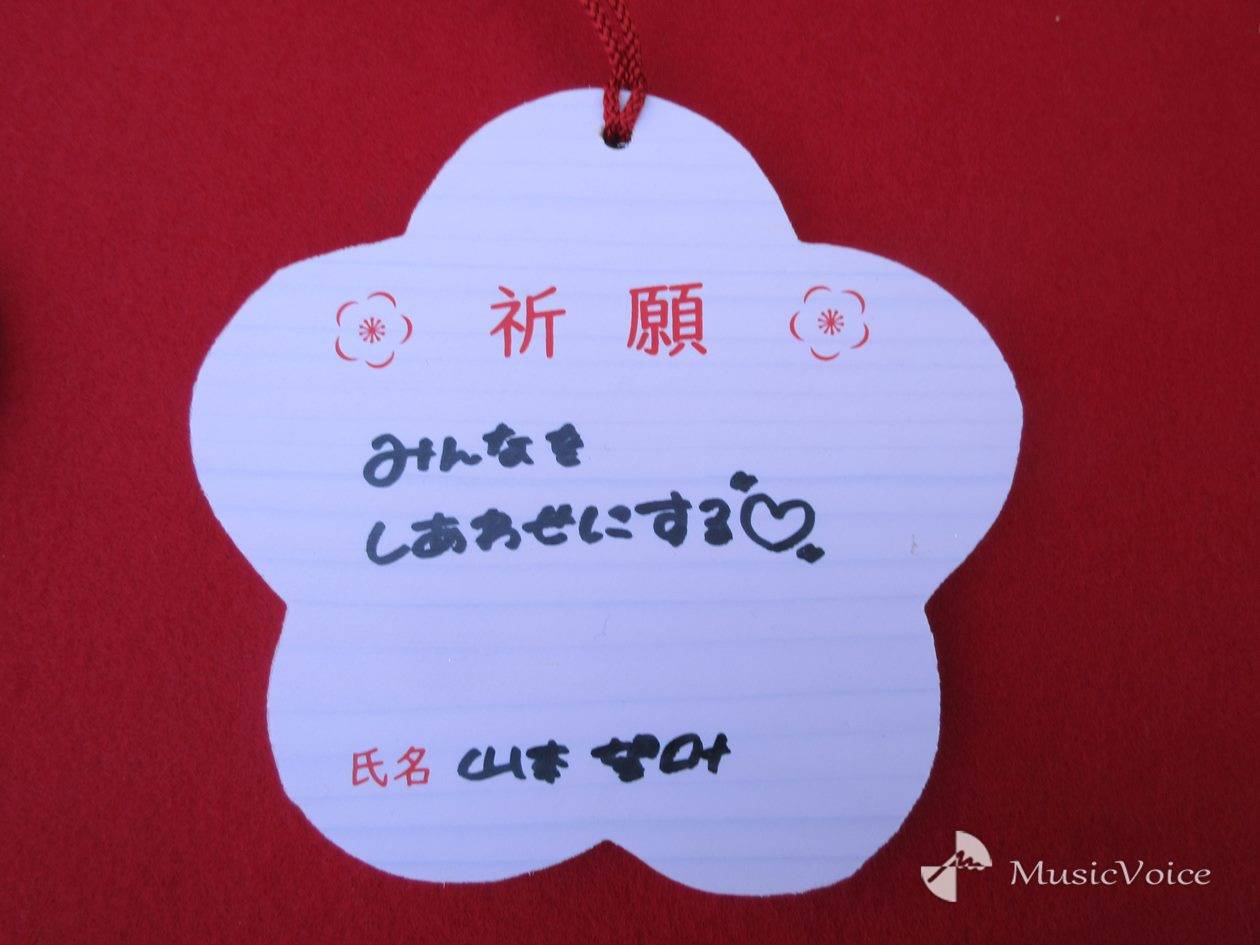 祈願
みんなを
しあわせにする♡
氏名 山本 望叶
MusicVoice